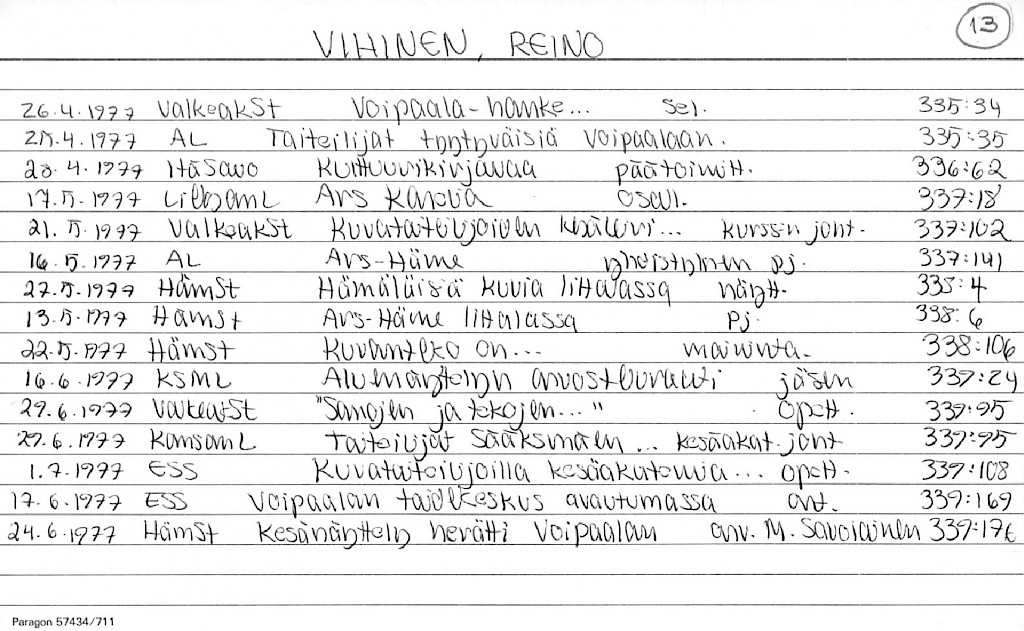 13
VIHINEN, REINO
26.4.1977 ValkeakSt Voipaala-hanke... Sel. 335:34
25.4.1977 AL Taiteilijat tyytyväisiä Voipaalaan. 335:35
28.4.1977 ItäSavo Kulttuurikirjavaa päätoimitt. 336:62
17.5.1977 LillbamL Ars Karelia osall. 337:18
21.5.1977 ValkeakSt Kuvataiteilijoiden kesäleiri... kurssin joht. 337:102
16.5.1977 AL Ars-Häme yhdistyksen pj. 337:141
27.5.1977 HämSt Hämäläisiä kuvia Iittalassa näytt. 338:4
13.5.1977 HämSt Ars-Häme Iittalassa pj. 338:6
22.5.1977 HämSt Kuvantelko on... maininta. 338:106
16.6.1977 KSML Aluenäyttelyn arvosteluraati jäsen 339:24
29.6.1977 ValkeakSt "Sanojen ja tekojen..." opett. 339:95
29.6.1977 KansanL Taiteilijat Sääksmäen... kesäakat. joht 339:95
1.7.1977 ESS Kuvataiteilijoilla kesäakatemia... opett. 339:108
17.6.1977 ESS Voipaalan taidekeskus avautumassa arv. 339:169
24.6.1977 HämSt Kesänäyttely herätti Voipaalan arv. M. Savolainen 339:176
Paragon 57434/711